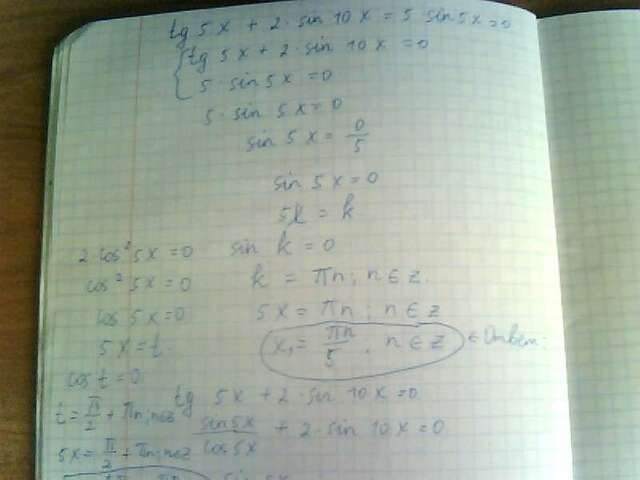 tg 5x + 2·sin 10x = 5 sin 5x = 0
tg 5x + 2·sin 10x = 0
5·sin 5x = 0
5·sin 5x = 0
sin 5x = 0/5
sin 5x = 0
5k = k
sin k = 0
k = πn; n∈z.
5x = πn; n∈z
x₁ = πn/5, n∈z ∈ Ответ.
2 cos² 5x = 0
cos² 5x = 0
cos 5x = 0
5x = t
cos t = 0
t = π/2 + πn; n∈z
5x = π/2 + πn; n∈z
tg 5x + 2·sin 10x = 0
sin 5x/cos 5x + 2·sin 10x = 0
sin 5x